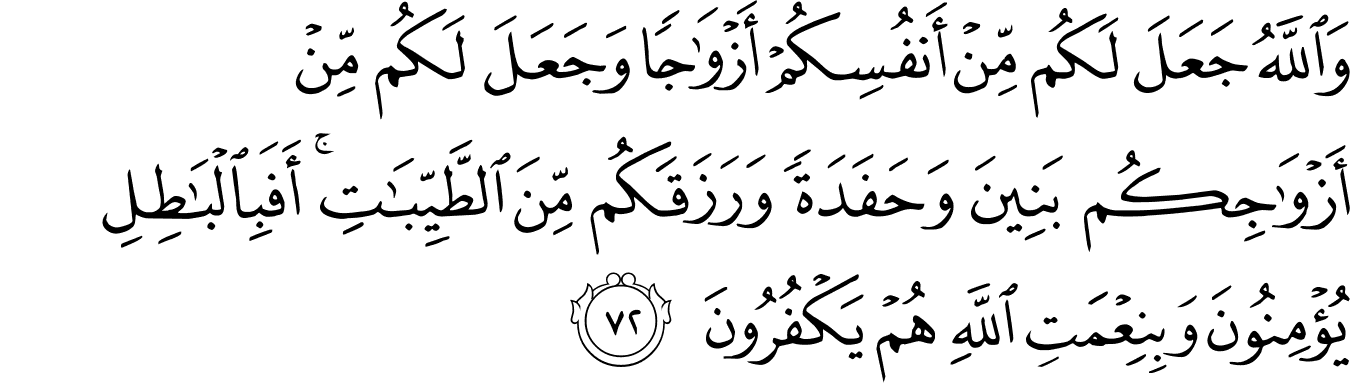 وَٱللَّهُ جَعَلَ لَكُم مِّنْ أَنفُسِكُمْ أَزْوَٰجًا وَجَعَلَ لَكُم مِّنْ
أَزْوَٰجِكُم بَنِينَ وَحَفَدَةً وَرَزَقَكُم مِّنَ ٱلطَّيِّبَـٰتِ ۚ أَفَبِٱلْبَـٰطِلِ
يُؤْمِنُونَ وَبِنِعْمَتِ ٱللَّهِ هُمْ يَكْفُرُونَ ٧٢